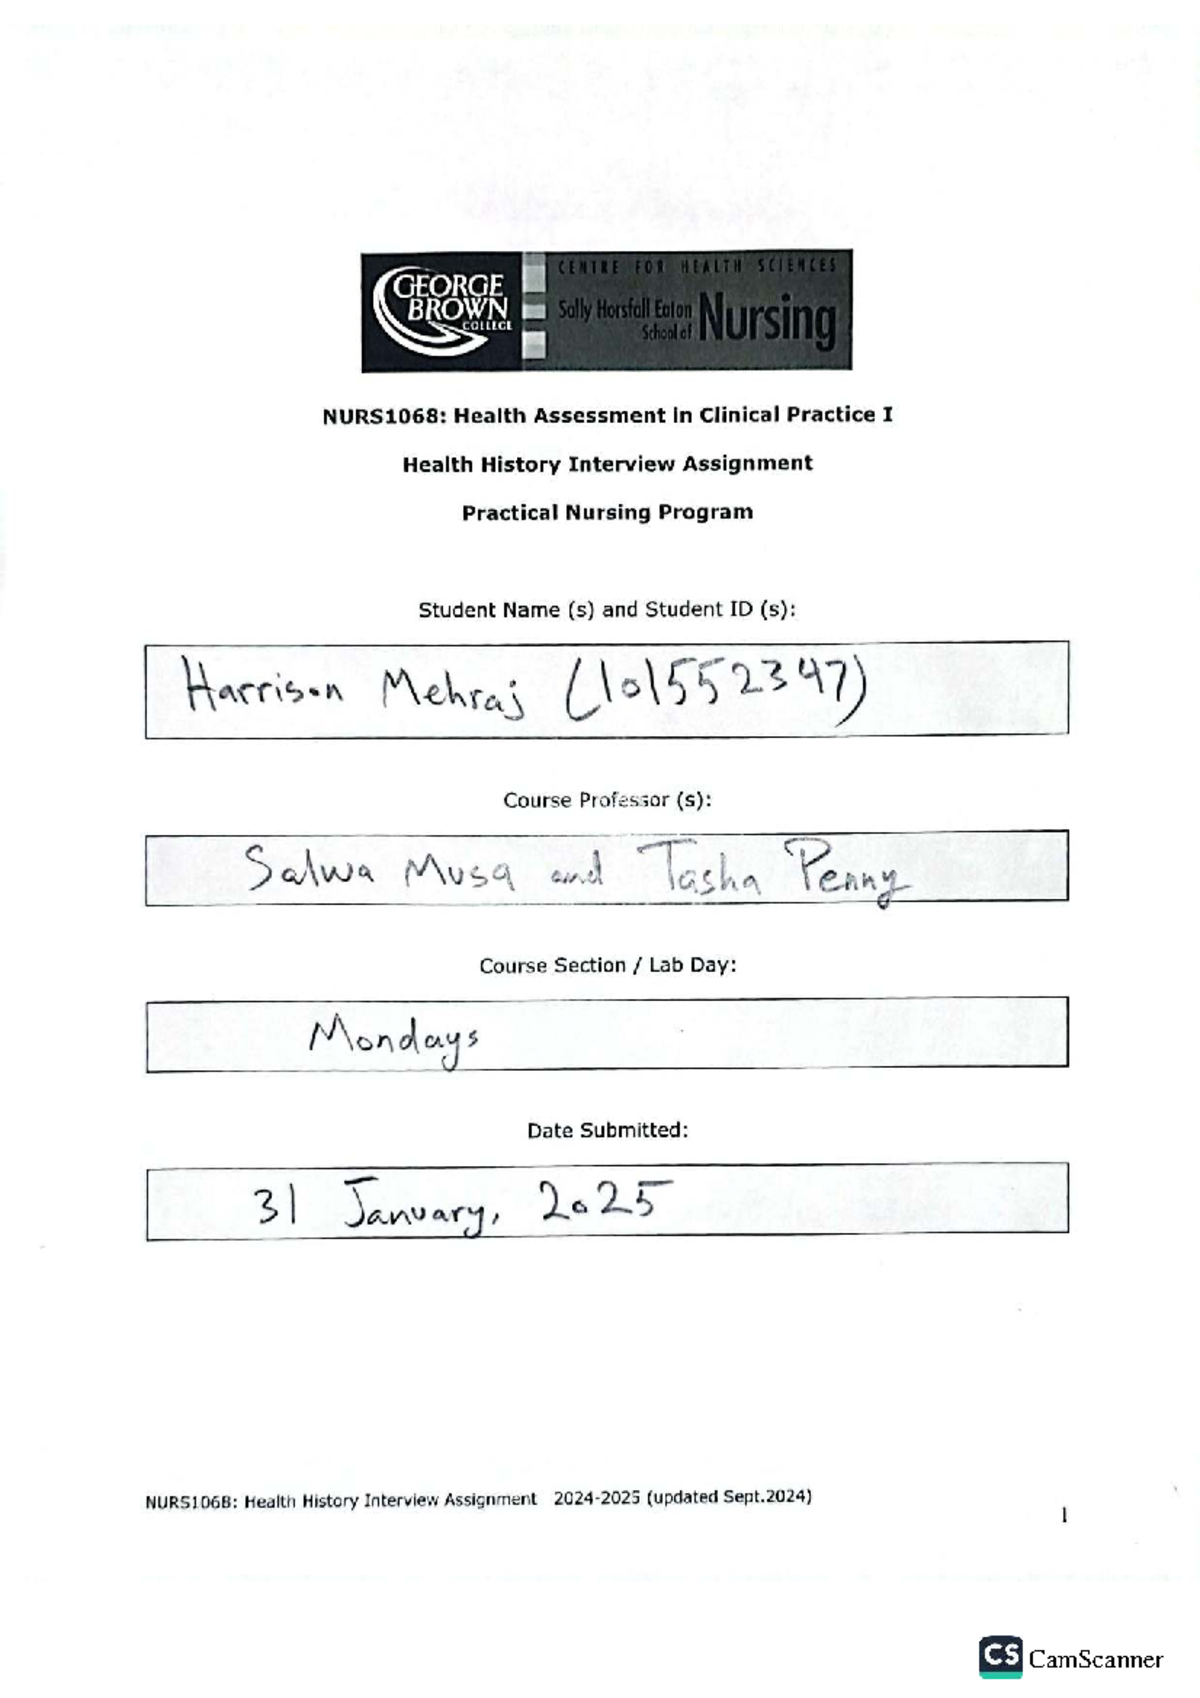 GEORGE
BROWN
COLLEGE
CENTRE FOR HEALTH SCIENCES
Sally Horsfall Eaton
School of
Nursing
NURS1068: Health Assessment in Clinical Practice I
Health History Interview Assignment
Practical Nursing Program
Student Name (s) and Student ID (s):
Harrison Mehraj (101552347)
Course Professor (s):
Salwa Musa and Tasha Penny
Course Section / Lab Day:
Mondays
Date Submitted:
31 January, 2025
NURS1068: Health History Interview Assignment 2024-2025 (updated Sept.2024)
1
CS CamScanner